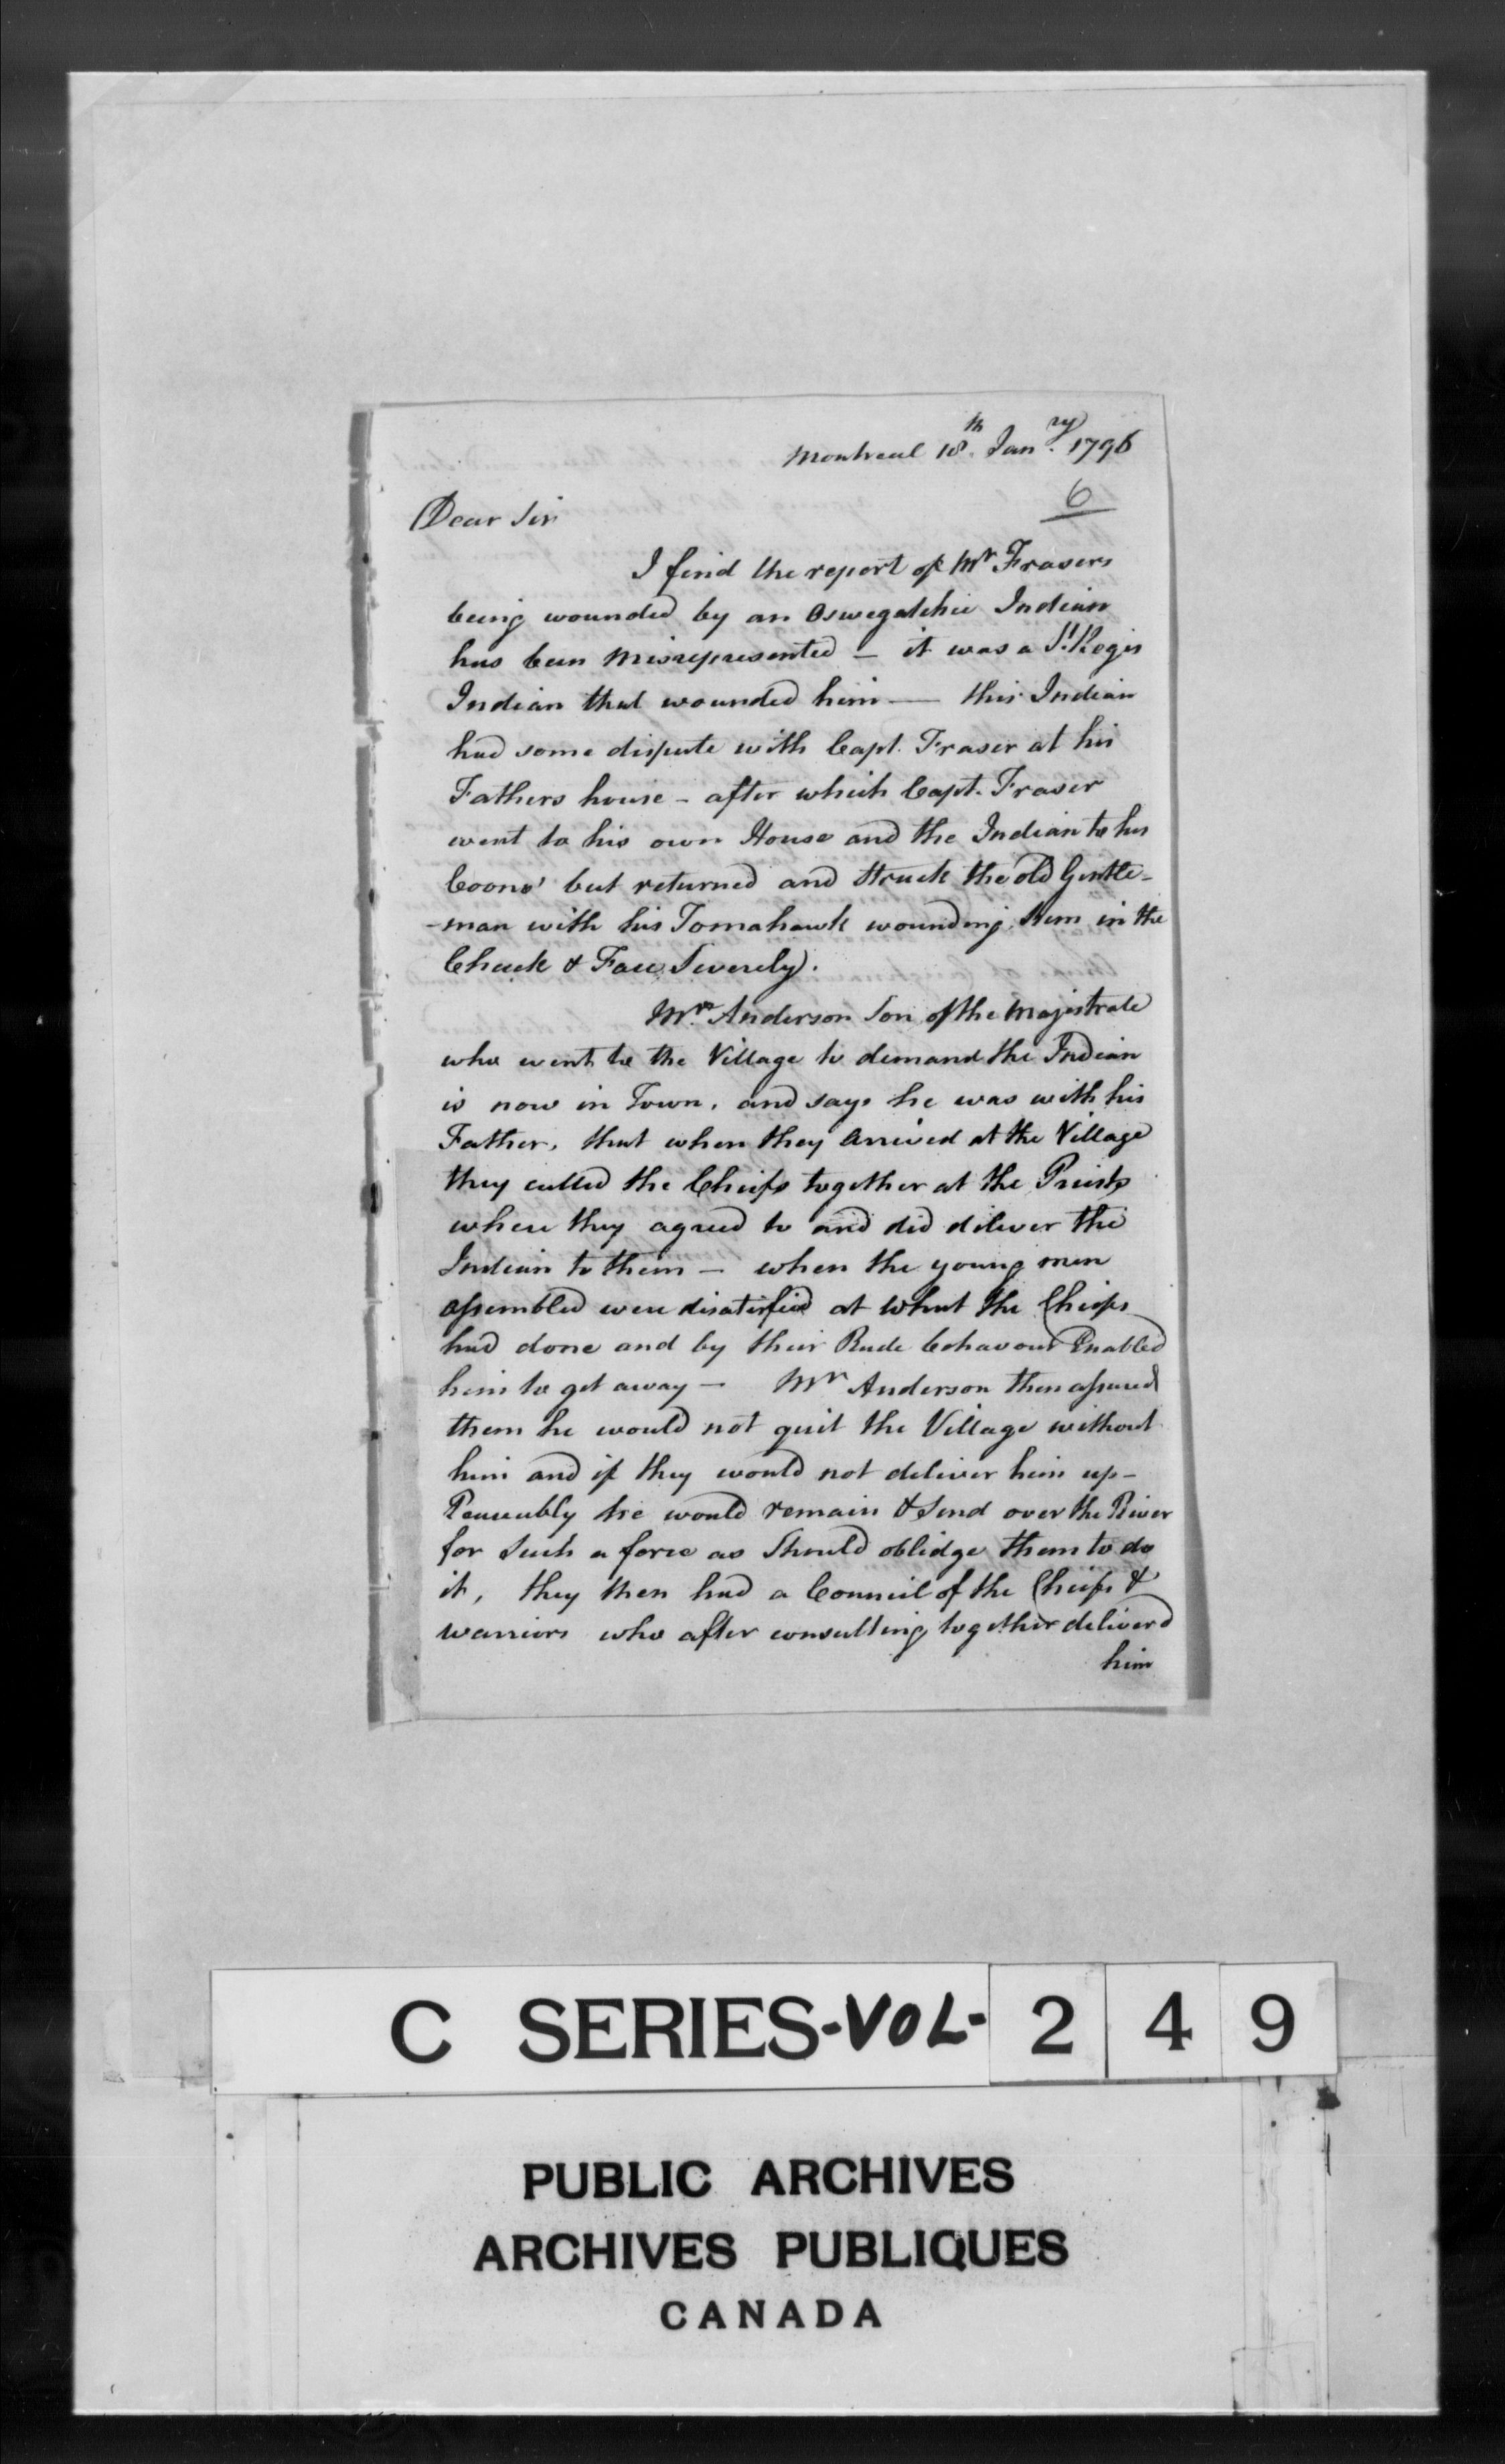 Montreal 18th Janry. 1796
6
Dear Sir
I find the report of Mr Frasers
being wounded by an Oswegatchie Indian
has been misrepresented – it was a St. Regis
Indian that wounded him — this Indian
had some dispute with Capt. Fraser at his
Fathers house – after which Capt. Fraser
went to his own House and the Indian to his
but returned and struck the old Gentle-
-man with his Tomahawk wounding him in the
Cheeck & Face Severely.
Mr. Anderson Son of the Majestrate
who went to the Village to demand the Indian
is now in Town, and says he was with his
Father, that when they arrived at the Village
they called the Chiefs together at the Priests
where they agreed to and did deliver the
Indian to them – when the young men
assembled were disatisfied at what the Chiefs
had done and by their Rude behavour Enabled
him to get away – Mr Anderson then assured
them he would not quit the Village without
him and if they would not deliver him up –
Peaceably he would remain & send over the River
for such a force as should oblidge them to do
it, they then had a Council of the Chiefs &
warriors who after consulting together deliverd
him
C SERIES-VOL- 2 4 9
PUBLIC ARCHIVES
ARCHIVES PUBLIQUES
CANADA